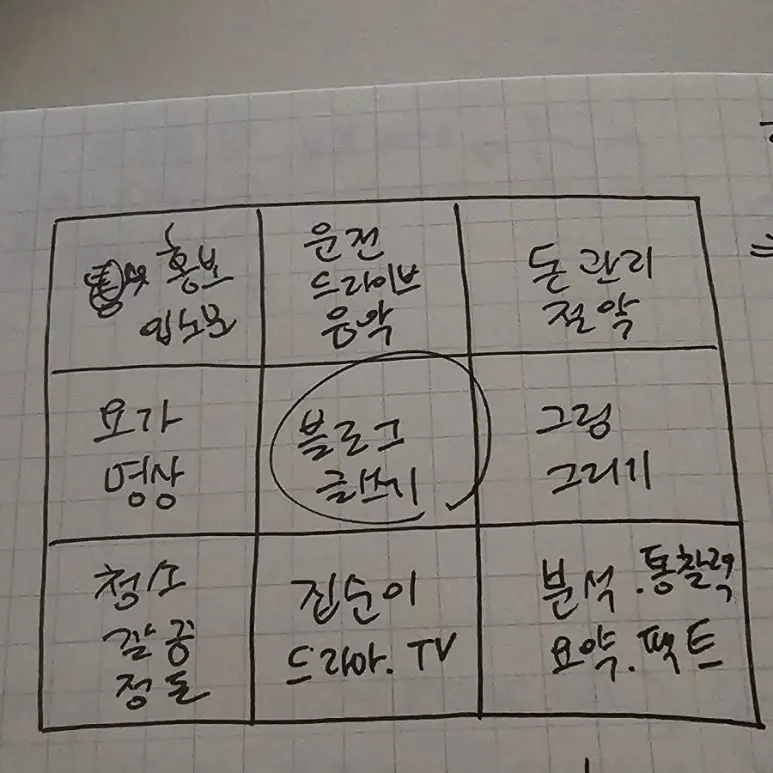 홍보
입소문
운전
드라이브
음악
돈 관리
절약
요가
명상
블로그
글쓰기
그림
그리기
청소
정돈
집순이
드라마. TV
분석.통찰력
요약.팩트